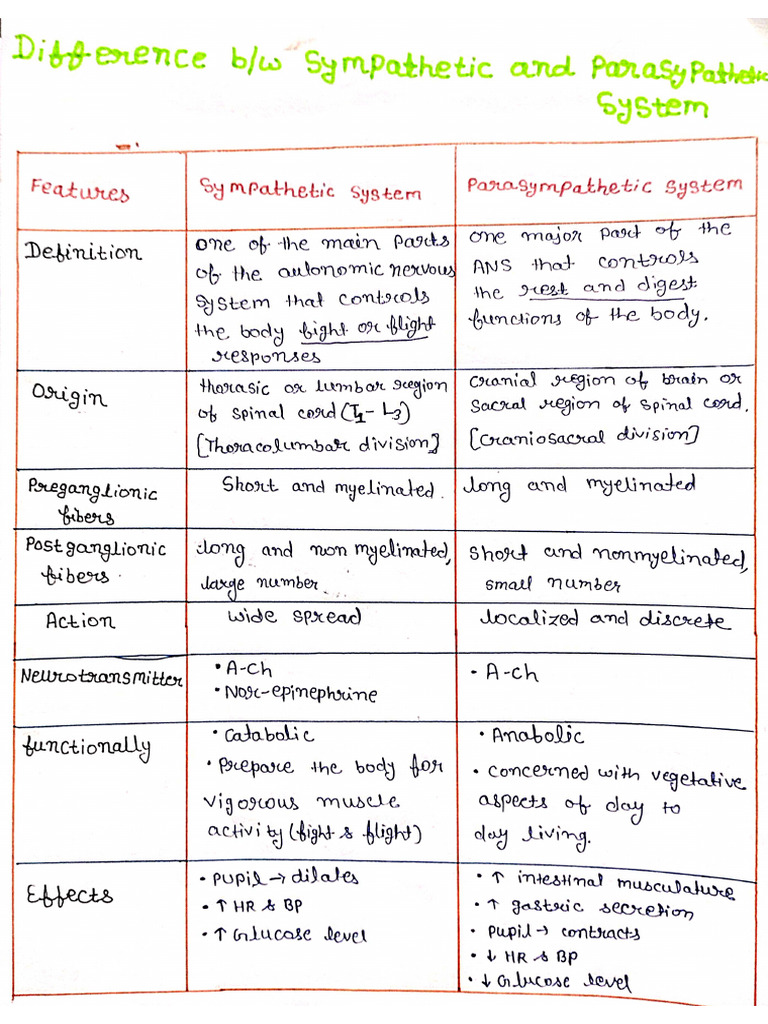 Difference b/w Sympathetic and Parasypathetic
System
Features
Sympathetic System
Parasympathetic System
Definition
one of the main parts
of the autonomic nervous
system that controls
the body fight or flight
responses
one major part of the
ANS that controls
the rest and digest
functions of the body.
Origin
thorasic or lumbar region
of spinal cord (T1 - L3)
[Thoracolumbar division]
Cranial region of brain or
sacral region of spinal cord.
[Craniosacral division]
Preganglionic
fibers
Short and myelinated.
long and myelinated
Postganglionic
fibers.
long and non myelinated,
large number.
Short and nonmyelinated,
small number
Action
wide spread
localized and discrete
Neurotransmitter
• A-Ch
• Nor-epinephrine
• A-ch
functionally
• Catabolic
• Prepare the body for
vigorous muscle
activity (fight & flight)
• Anabolic
• concerned with vegetative
aspects of day to
day living.
Effects
• pupil → dilates
• ↑ HR & BP
• ↑ Glucose level
• ↑ intestinal musculature
• ↑ gastric secretion
• pupil → contracts
• ↓ HR & BP
• ↓ Glucose level